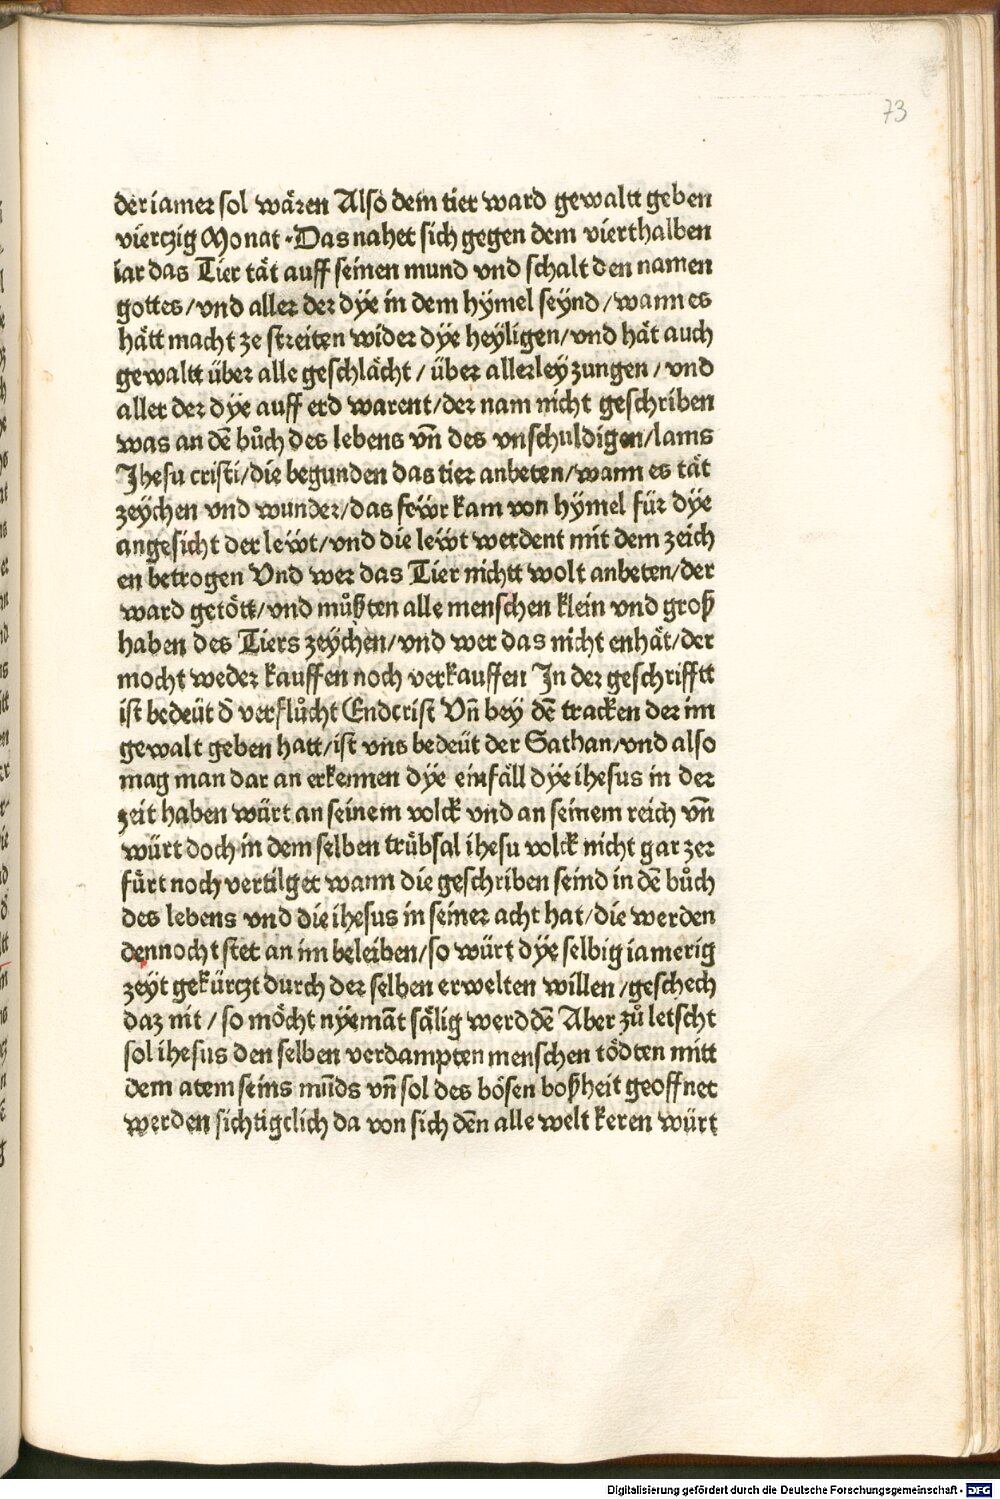 73
der iamer sol wären Also dem tier ward gewaltt geben
viertzig Monat ·Das nahet sich gegen dem vierthalben
iar das Tier tät auff seinen mund vnd schalt den namen
gottes/vnd aller der dÿe in dem hÿmel seÿnd/wann es
hätt macht ze streiten wider dÿe heÿligen/vnd hät auch
gewaltt über alle geschlächt/über allerleÿ zungen/vnd
aller der dÿe auff erd warent/der nam nicht geschriben
was an dē bůch des lebens vn̄ des vnschuldigen/lams
Jhesu cristi/die begunden das tier anbeten/wann es tät
zeÿchen vnd wunder/das feẅr kam von hÿmel für dÿe
angesicht der leẅt/vnd die leẅt werdent mit dem zeich
en betrogen Vnd wer das Tier nichtt wolt anbeten/der
ward getött/vnd můßten alle menschen klein vnd groß
haben des Tiers zeÿchen/vnd wer das nicht enhät/der
mocht weder kauffen noch verkauffen In der geschrifftt
ist bedeüt d̄ verflůcht Endcrist Vn̄ bey dē tracken der im
gewalt geben hatt/ist vns bedeüt der Sathan/vnd also
mag man dar an erkennen dÿe einfäll dÿe ihesus in der
zeit haben würt an seinem volck vnd an seinem reich vn̄
würt doch in dem selben trübsal ihesu volck nicht gar zer
fürt noch vertilget wann die geschriben seind in dē bůch
des lebens vnd die ihesus in seiner acht hat/die werden
dennocht stet an im beleiben/so würt dÿe selbig iamerig
zeÿt gekürtzt durch der selben erwelten willen/geschech
daz nit/so möcht nÿemāt sälig werddē Aber zů letscht
sol ihesus den selben verdampten menschen tödten mitt
dem atem seins mūds vn̄ sol des bösen boßheit geoffnet
werden sichtigclich da von sich dēn alle welt keren würt
Digitalisierung gefördert durch die Deutsche Forschungsgemeinschaft - DFG